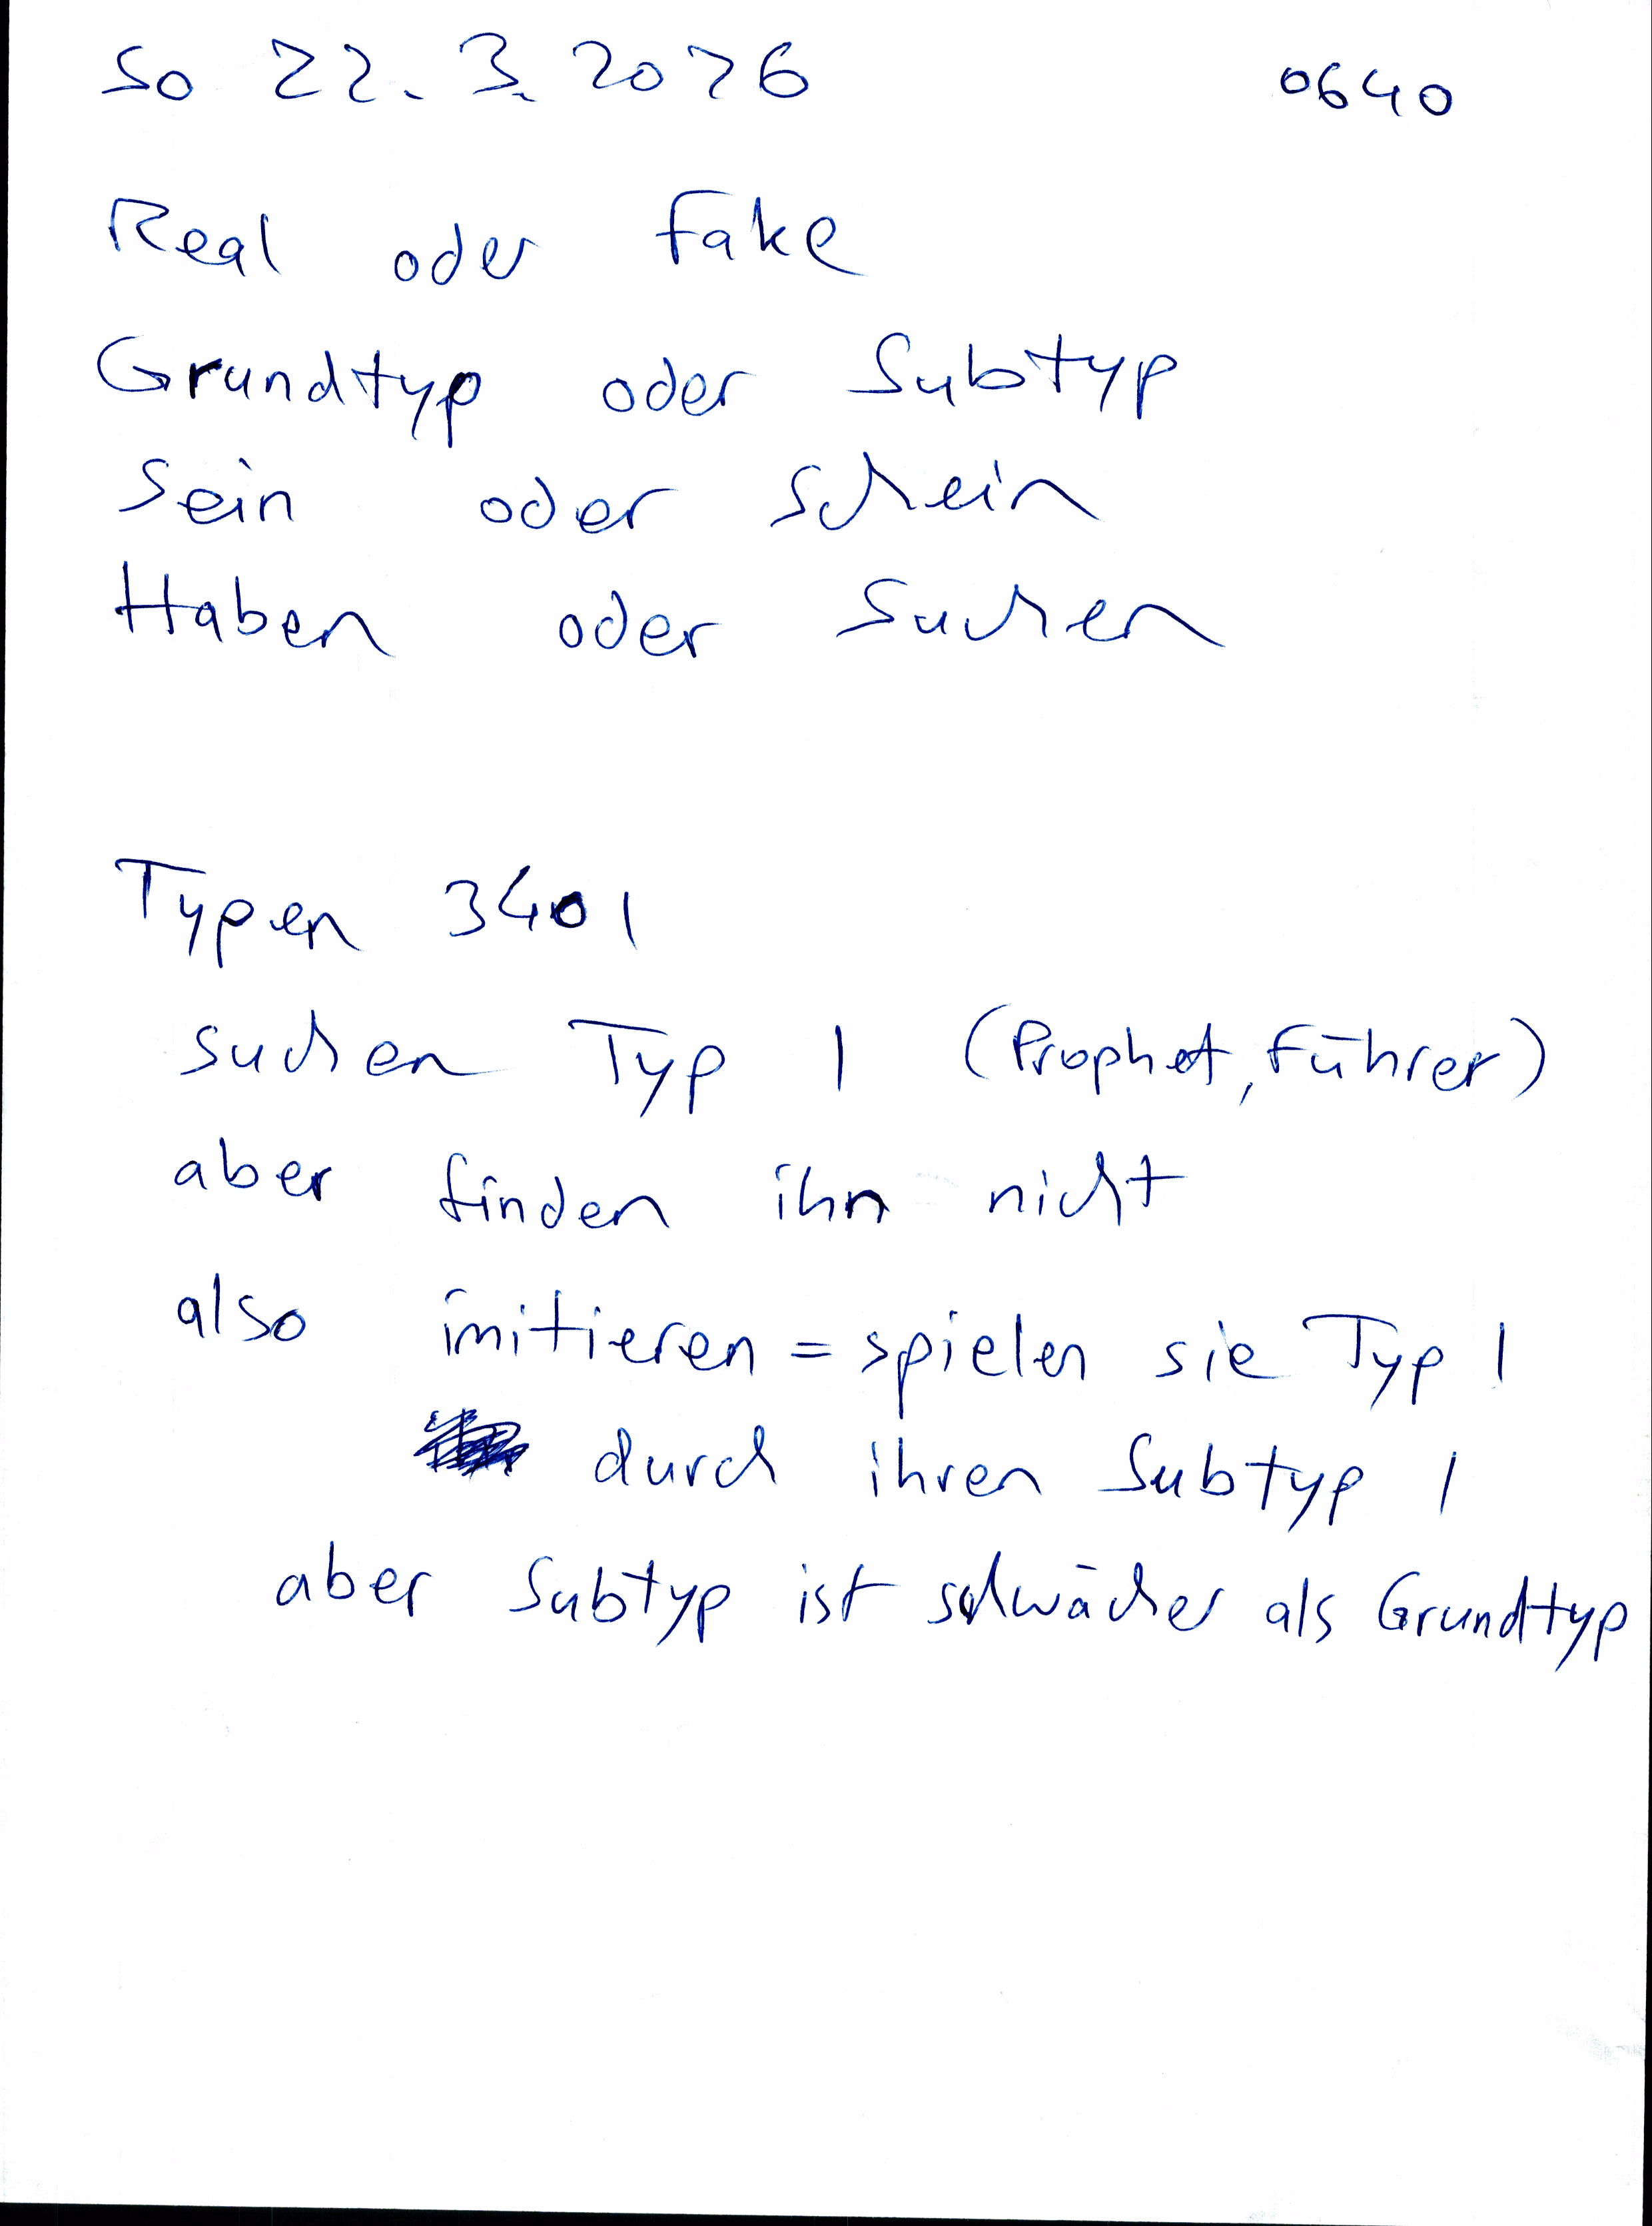 So 22. 3. 2026 0640
Real oder Fake
Grundtyp oder Subtyp
Sein oder Schein
Haben oder Suchen
Typen 3401
suchen Typ 1 (Prophet, Führer)
aber finden ihn nicht
also imitieren = spielen sie Typ 1
durch ihren Subtyp 1
aber Subtyp ist schwächer als Grundtyp